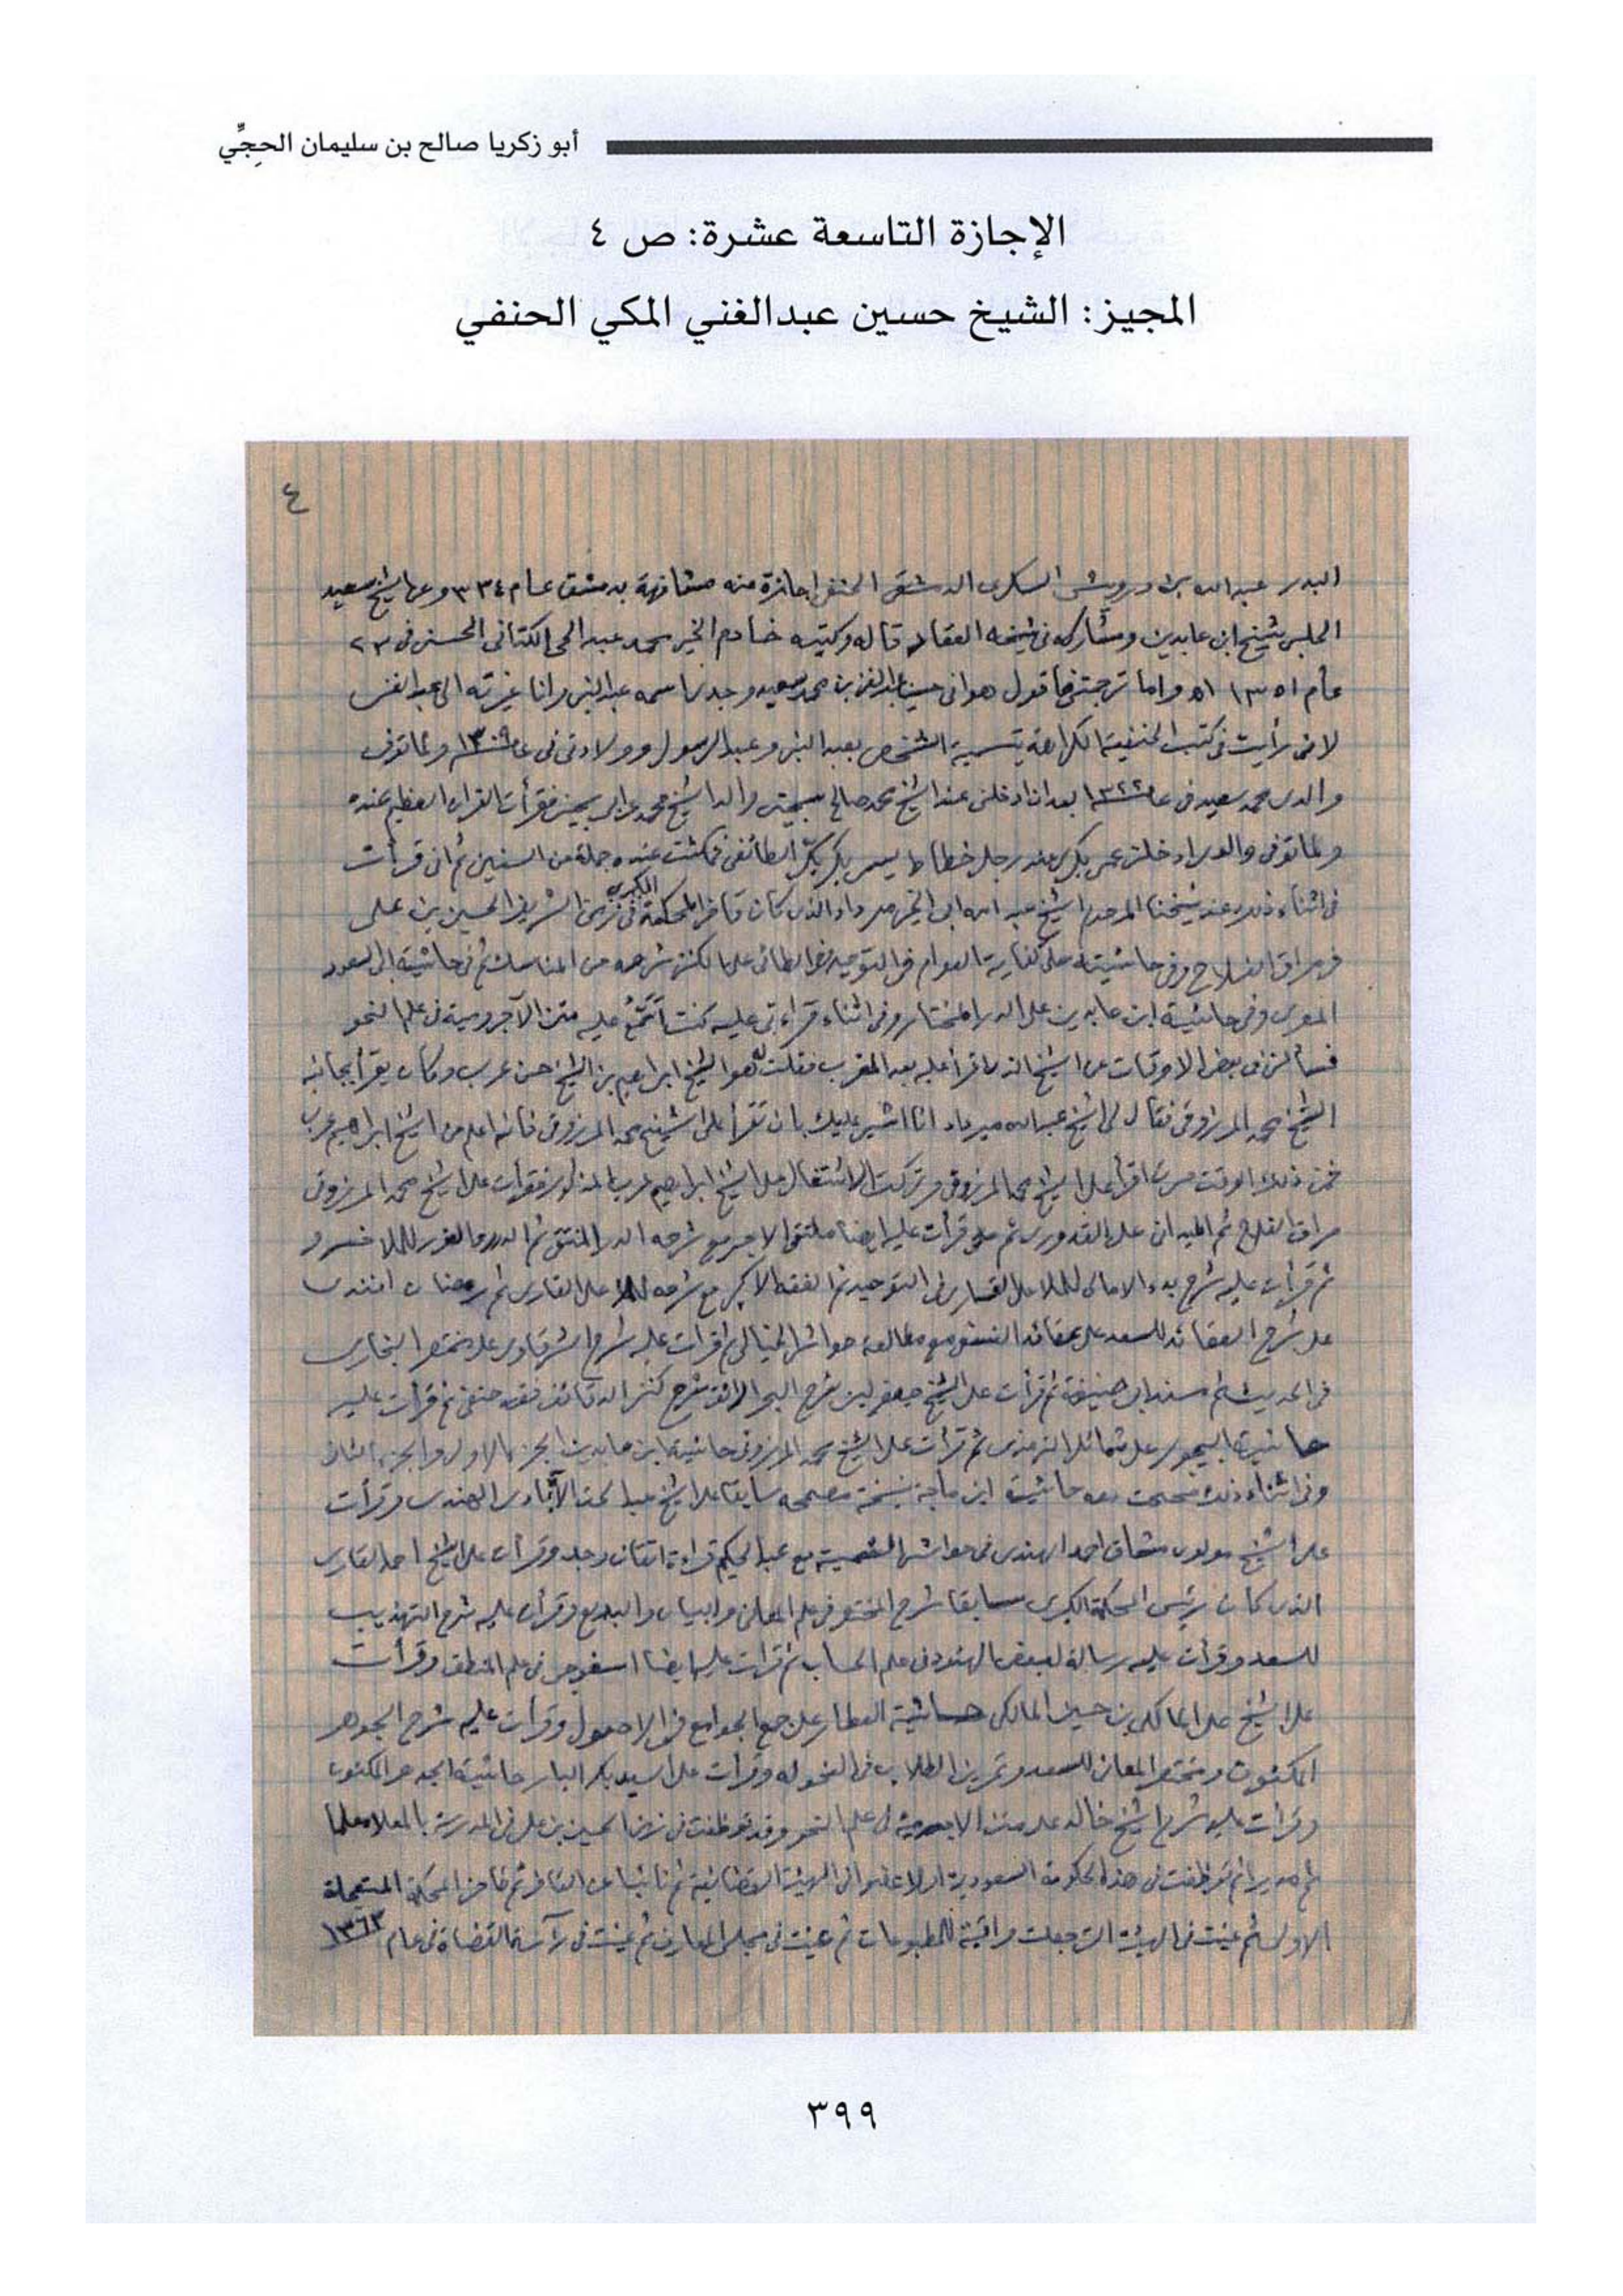 أبو زكريا صالح بن سليمان الحجِّي
الإجازة التاسعة عشرة: ص ٤
المجيز: الشيخ حسين عبدالغني المكي الحنفي
٤
البدر عبد الله بن درويش السكرى الدمشقى الحنفى اجازة منه مشافهة بدمشق عام ٣٣٤ وعن الشيخ سعيد
الحلبى شيخ ابن عابدين ومشاركه فى شيخه العقاد قاله وكتبه خادم الخير محمد عبد الحى الكتانى الحسنى فى ٢٣
عام ١٣٥١ ه واما ترجمتى فأقول هو انى حسين عبد الغنى بن محمد سعيد وجدنا اسمه عبد النبى وانا غيرته الى عبد الغنى
لانى رأيت فى كتب الحنفية الكراهة بتسمية الشخص بعبد النبى وعبد الرسول وولادتى فى عام ١٣٠٩ ولما توفى
والدى محمد سعيد فى عام ١٣٢٢ بعد ان ادخلنى عند الشيخ محمد صالح فقرأت القران العظيم عنده
ولما توفى والدى ادخلنى عمى بكرى عند رجل خطاط يسمى بكر الطائفى فمكثت عنده جملة من السنين ثم انى قرأت
فى اثناء ذلك عند شيخنا المرحوم الشيخ عبد الله ابى الخير مرداد الذى كان قاضى المحكمة الكبرى فى زمن الشريف الحسين بن على
فى مراقى الفلاح وفى حاشيته على كفاية العوام فى التوحيد وفى الطائى على الكنز شرحه من المناسك ثم فى حاشية ابى السعود
المصرى وفى حاشية ابن عابدين على الدر المختار وفى اثناء قراءتى عليه كنت عليه متن الآجرومية فى علم النحو
فسألنى فى بعض الاوقات عن الشيخ الذى اقرأ عليه بعد المغرب فقلت له هو الشيخ ابراهيم بن الشيخ حسن عرب وكان يقرأ بجانبه
الشيخ محمد المرزوقى فقال لى الشيخ عبد الله مرداد انا اشير عليك بان تقرأ على الشيخ محمد المرزوقى فانه اعلم من الشيخ ابراهيم عرب
فمن ذلك الوقت صرت اقرأ على الشيخ محمد المرزوقى وتركت الاشتغال على الشيخ ابراهيم عرب المذكور فقرأت على الشيخ محمد المرزوقى
مراقى الفلاح ثم الميدانى على القدورى ثم قرأت عليه ايضا ملتقى الابحر مع شرحه الدر المنتقى ثم الدرر والغرر للملا خسرو
ثم قرأت عليه شرح بدء الامالى للملا على القارى فى التوحيد ثم الفقه الاكبر مع شرحه للملا على القارى ثم رمضان افندى
على شرح العقائد للسعد على عقائد النسفى مع مطالعة حواشى الخيالى ثم قرأت عليه شرح الشرقاوى على مختصر البخارى
فى الحديث ثم مسند ابى حنيفة ثم قرأت على الشيخ جعفر لبنى شرح البحر الرائق شرح كنز الدقائق فقه حنفى ثم قرأت عليه
حاشية البيجورى على شمائل الترمذى ثم قرأت على الشيخ محمد المرزوقى حاشية ابن عابدين الجزء الاول والجزء الثانى
وفى اثناء ذلك صححت معه حاشية ابن ماجة بنسخة مصححه سابقا على الشيخ عبد الحق الآبادى الهندى وقرأت
على الشيخ مولوى مشتاق احمد الهندى فى حواشى الشمسية مع عبد الحكيم قراءة اتقان وجد وقرأت على الشيخ احمد القارى
الذى كان رئيس المحكمة الكبرى سابقا شرح المختصر فى علم المعانى والبيان والبديع وقرأت عليه شرح التهذيب
للسعد وقرأت عليه رسالة لبعض الهنود فى علم الحساب ثم قرأت عليه ايضا فى علم المنطق وقرأت
على الشيخ على المالكى بن حسين المالكى حاشية العطار على جمع الجوامع فى الاصول وقرأت عليه شرح الجوهر
المكنون ومختصر المعانى للسعد وتمرين الطلاب فى النحو له وقرأت على السيد بكر البار حاشية الجوهر المكنون
وقرأت عليه شرح الشيخ خالد على متن الاجرومية فى علم النحو وقد توظفت فى زمن الحسين بن على فى المدرسة بالمعلا معلما
ثم مديرا ثم توظفت فى هذه الحكومة السعودية اولا عضوا فى الهيئة القضائية ثم نائبا عن القاضى ثم قاضى المحكمة المستعجلة
الاولى ثم عينت فى الهيئة التى جعلت مراقبة للمطبوعات ثم عينت فى مجلس المعارف ثم عينت فى رآسة القضاة فى عام ١٣٦٣
٣٩٩